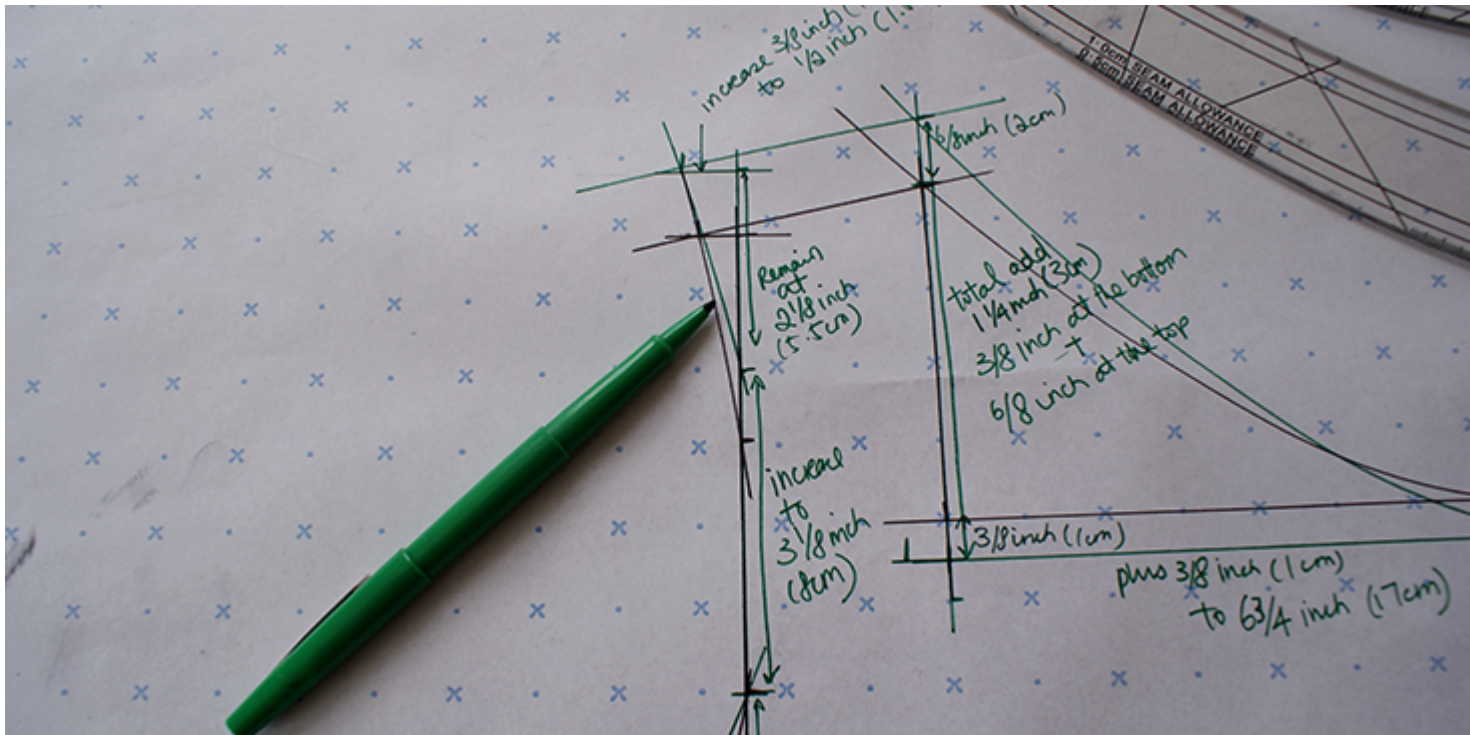 increase 3/8 inch (1
to 1/2 inch (1.
1·0cm SEAM ALLOWANCE
0·6cm SEAM ALLOWANCE
6/8 inch (2cm)
Remain
at
2 1/8 inch
(5.5cm)
total add
1 1/4 inch (3cm)
3/8 inch at the bottom
+
6/8 inch at the top
increase
to
3 1/8 inch
(8cm)
3/8 inch (1cm)
plus 3/8 inch (1cm)
to 6 3/4 inch (17cm)